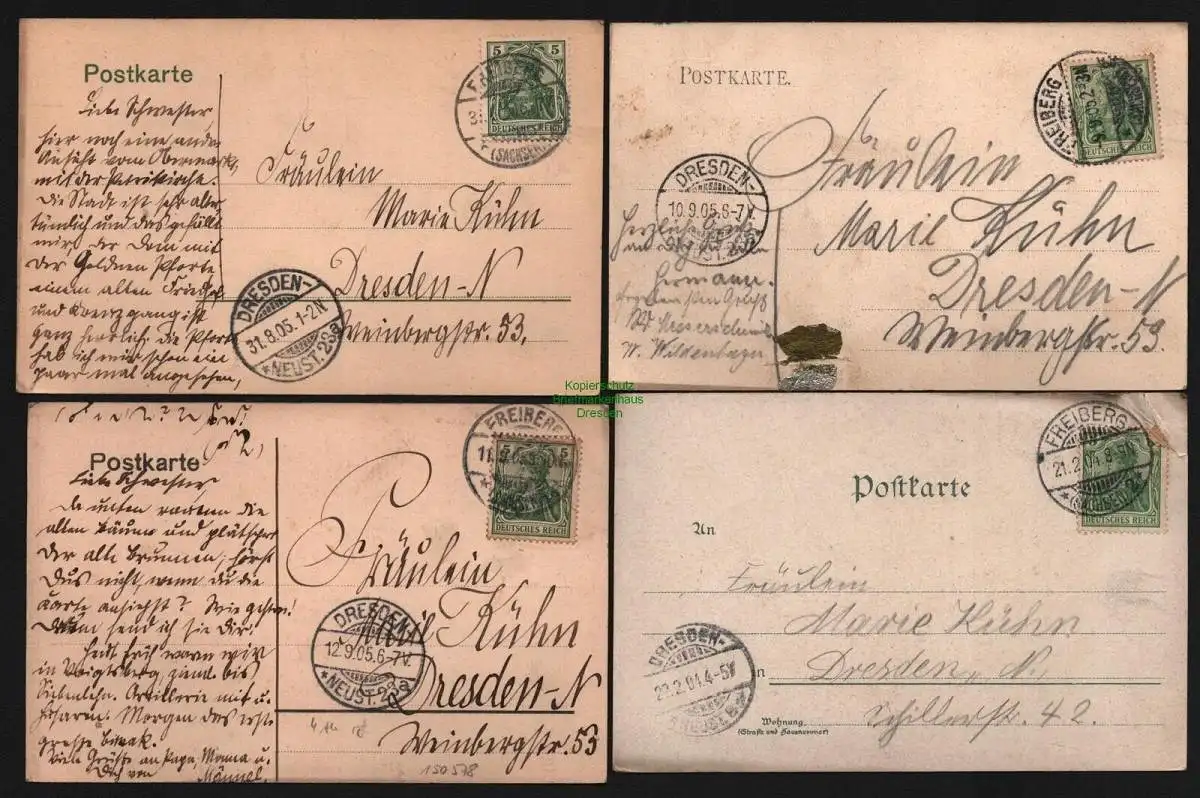 Postkarte
Liebe Schwester
hier noch eine andere
Ansicht vom Obermarkt,
mit der Petrikirche.
Die Stadt ist sehr alter-
tümlich und das gefällt
mir, der Dom mit
der Goldnen Pforte
einem alten Friedhof
und Kreuzgang ist
ganz herrlich. Die Pforte
hab ich mir schon ein
paar mal angesehen,
5 5
DEUTSCHES REICH
(SACHSEN)
Fräulein
Marie Kühn
Dresden-N
Weinbergstr. 53.
DRESDEN-
31.8.05.1-2N
*NEUST.23a
POSTKARTE.
FREIBERG
DEUTSCHES REICH
Fräulein
Marie Kühn
Dresden-N
Weinbergstr. 53.
DRESDEN-
10.9.05.6-7V.
Herzlichen
Hermann
Kopierschutz
Briefmarkenhaus
Dresden
Postkarte
Liebe Schwester,
Da unten rauschen die
alten Bäume und plätschert
der alte Brunnen, hörst
Dus nicht, wenn du die
Karte ansiehst? Wie gestern!
Drum send ich sie Dir.
Heut früh waren wir
in Voigtsberg,
Siebenlehn. Artillerie mit u.
Husaren. Morgen das erste
große biwak.
Viele Grüße an Papa, Mama u.
Dich von Männel.
FREIBERG
5 5
DEUTSCHES REICH
Fräulein
Marie Kühn
Dresden-N
Weinbergstr. 53
DRESDEN-
12.9.05.6-7V.
*NEUST.23a
150578
Postkarte
FREIBERG
21.2.04.8-9N.
*(SACHSEN)
DEUTSCHES REICH
An
Fräulein
Marie Kühn
in Dresden, N.
Schillerstr. 42.
DRESDEN-
22.2.04.4-5V
Wohnung
(Straße und Hausnummer)